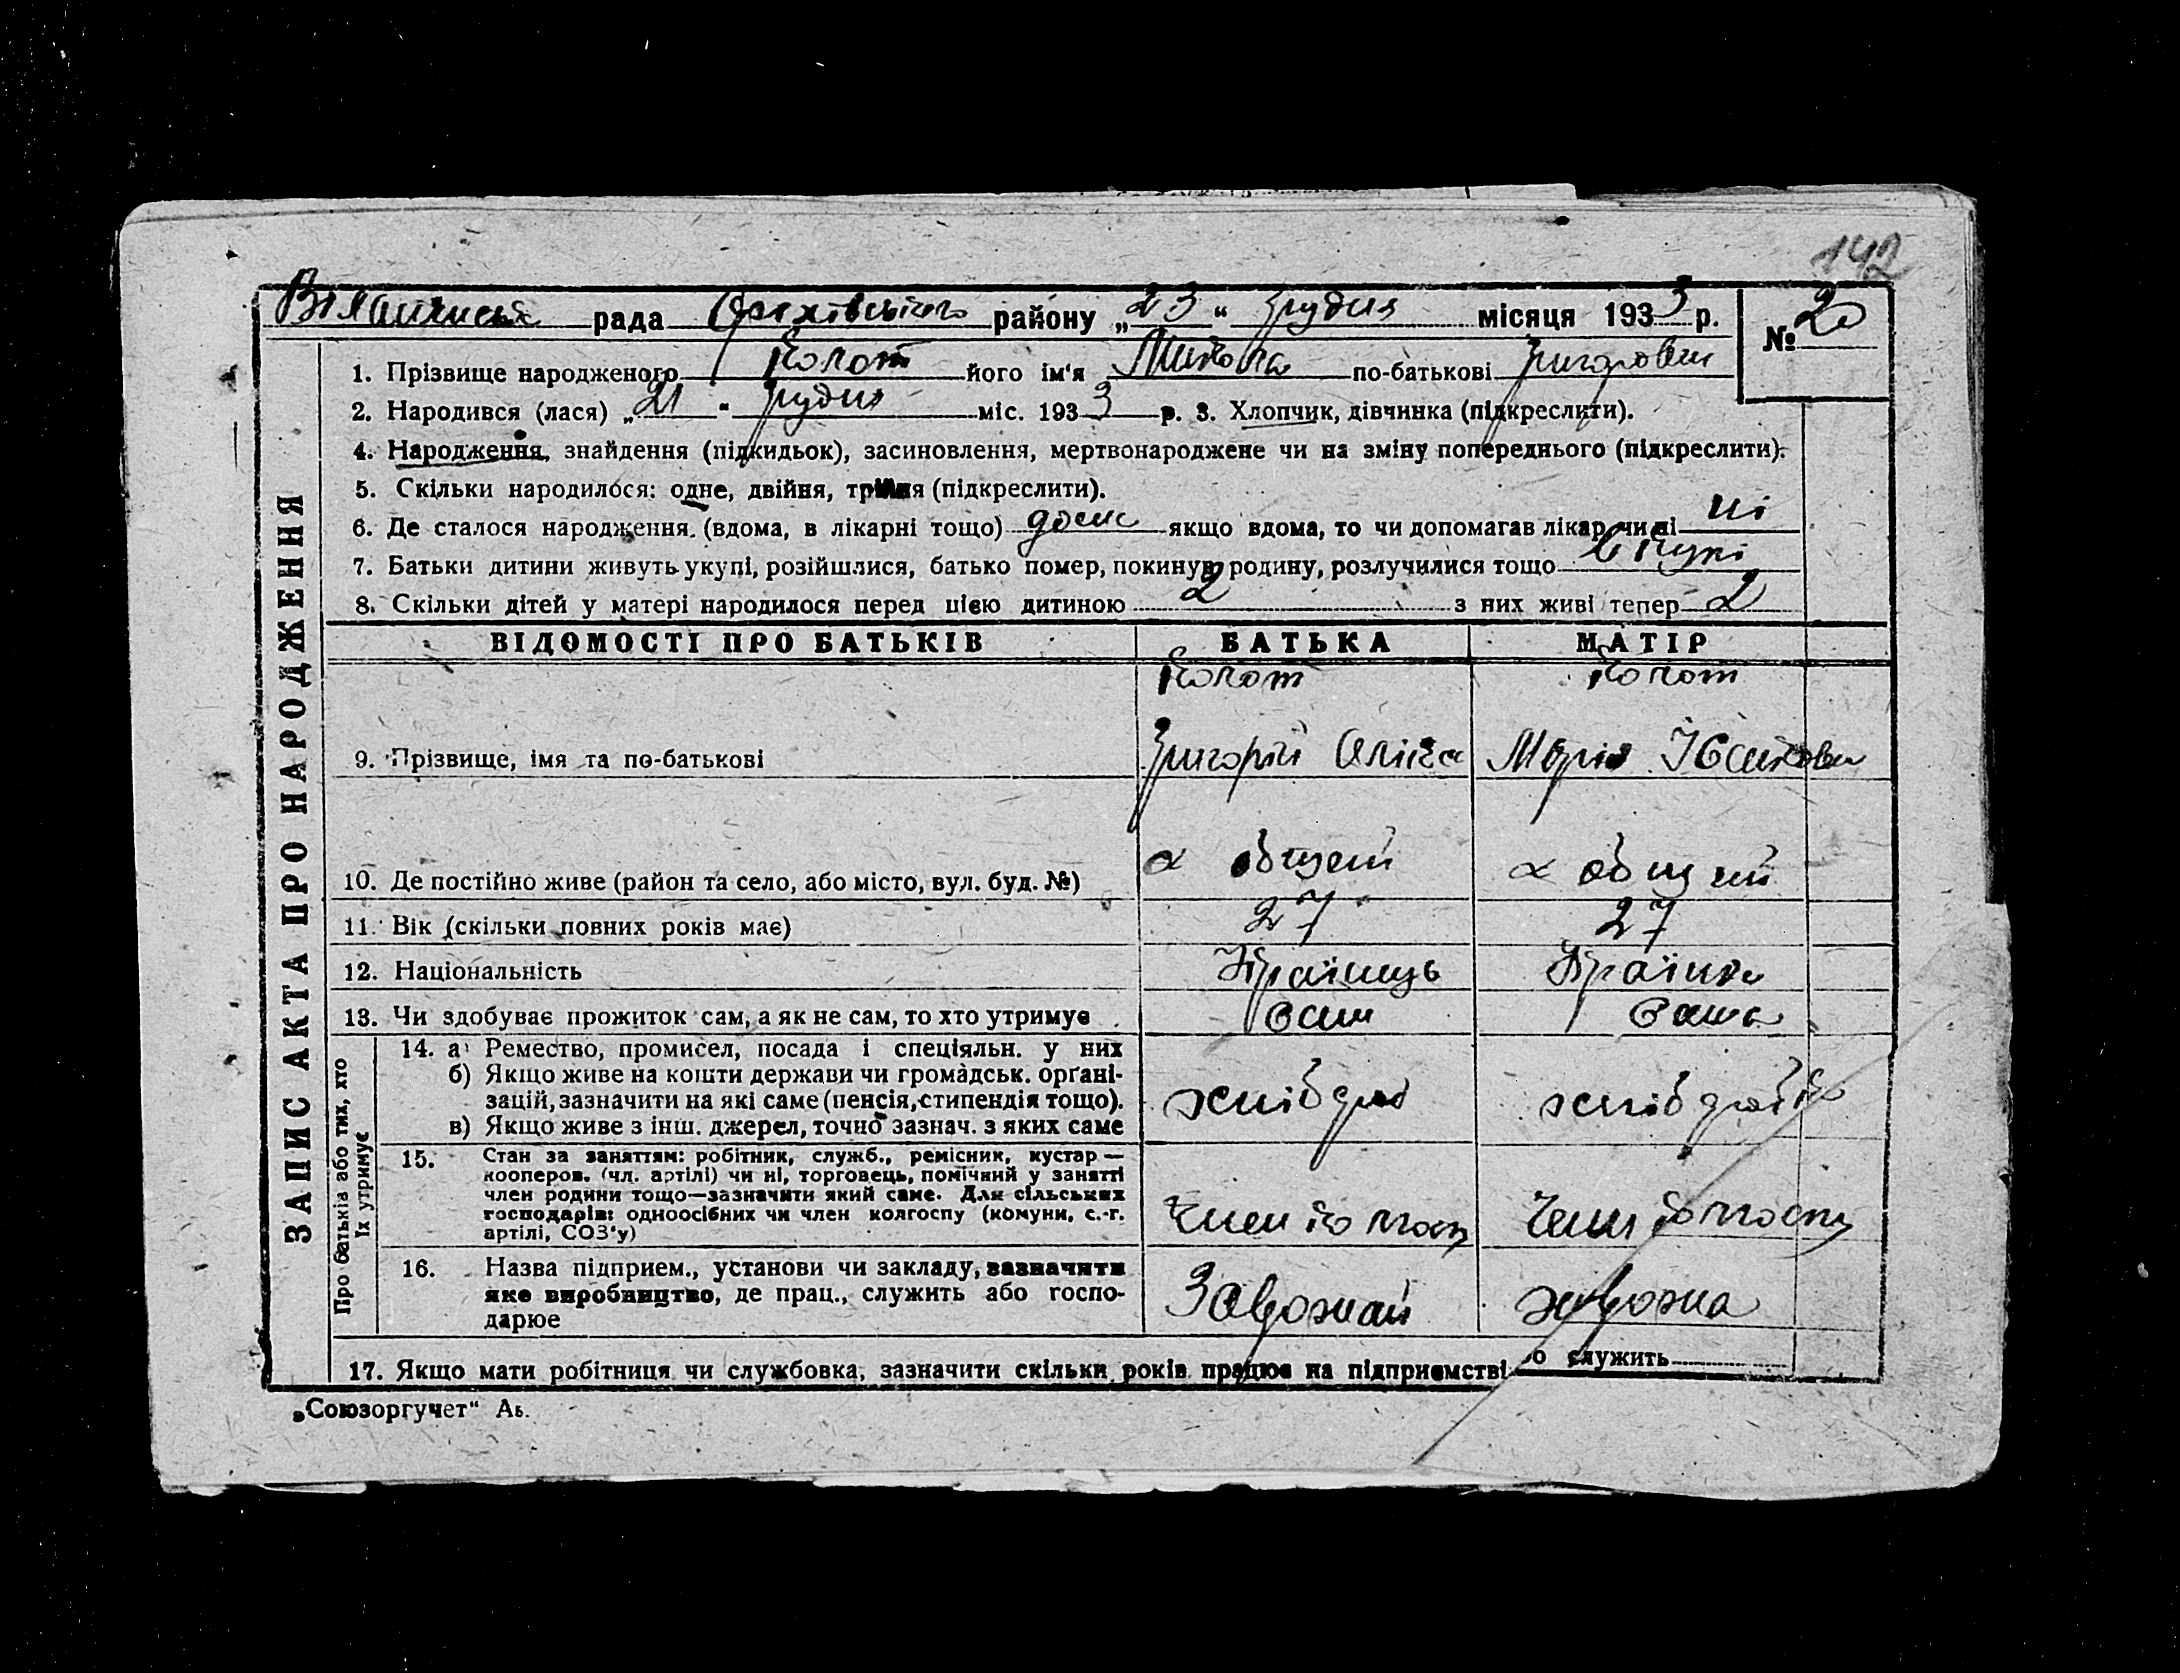 142
рада Оріхівського району „23“ грудня місяця 1933 р.
№ 20
1. Прізвище народженого Колот його ім'я Микола по-батькові Григорович
2. Народився (лася) „21“ грудня міс. 1933 р. 3. Хлопчик, дівчинка (підкреслити).
4. Народження, знайдення (підкидьок), засиновлення, мертвонароджене чи на зміну попереднього (підкреслити).
5. Скільки народилося: одне, двійня, трійня (підкреслити).
6. Де сталося народження (вдома, в лікарні тощо) дома якщо вдома, то чи допомагав лікар чи ні ні
7. Батьки дитини живуть укупі, розійшлися, батько помер, покинув родину, розлучилися тощо вкупі
8. Скільки дітей у матері народилося перед цією дитиною 2 з них живі тепер 2
ЗАПИС АКТА ПРО НАРОДЖЕННЯ
ВІДОМОСТІ ПРО БАТЬКІВ БАТЬКА МАТІР
Колот Колот
9. Прізвище, імя та по-батькові Григорій Марія
10. Де постійно живе (район та село, або місто, вул. буд. №)
11. Вік (скільки повних років має) 27 27
12. Національність Країнець Країнка
13. Чи здобуває прожиток сам, а як не сам, то хто утримує Сам Сама
Про батьків або тих, хто їх утримує
14. а) Ремество, промисел, посада і спеціяльн. у них
б) Якщо живе на кошти держави чи громадськ. орґані-
зацій, зазначити на які саме (пенсія, стипендія тощо).
в) Якщо живе з інш. джерел, точно зазнач. з яких саме
15. Стан за заняттям: робітник, служб., ремісник, кустар —
кооперов. (чл. артілі) чи ні, торговець, помічний у занятті
член родини тощо—зазначити який саме. Для сільських
господарів: одноосібних чи член колгоспу (комуни, с.-г.
артілі, СОЗ'у)
Член колгосп Член колгоспу
16. Назва підприєм., установи чи закладу, зазначити
яке виробництво, де прац., служить або госпо-
дарює
17. Якщо мати робітниця чи службовка, зазначити скільки років працює на підприємстві служить
„Союзоргучет“